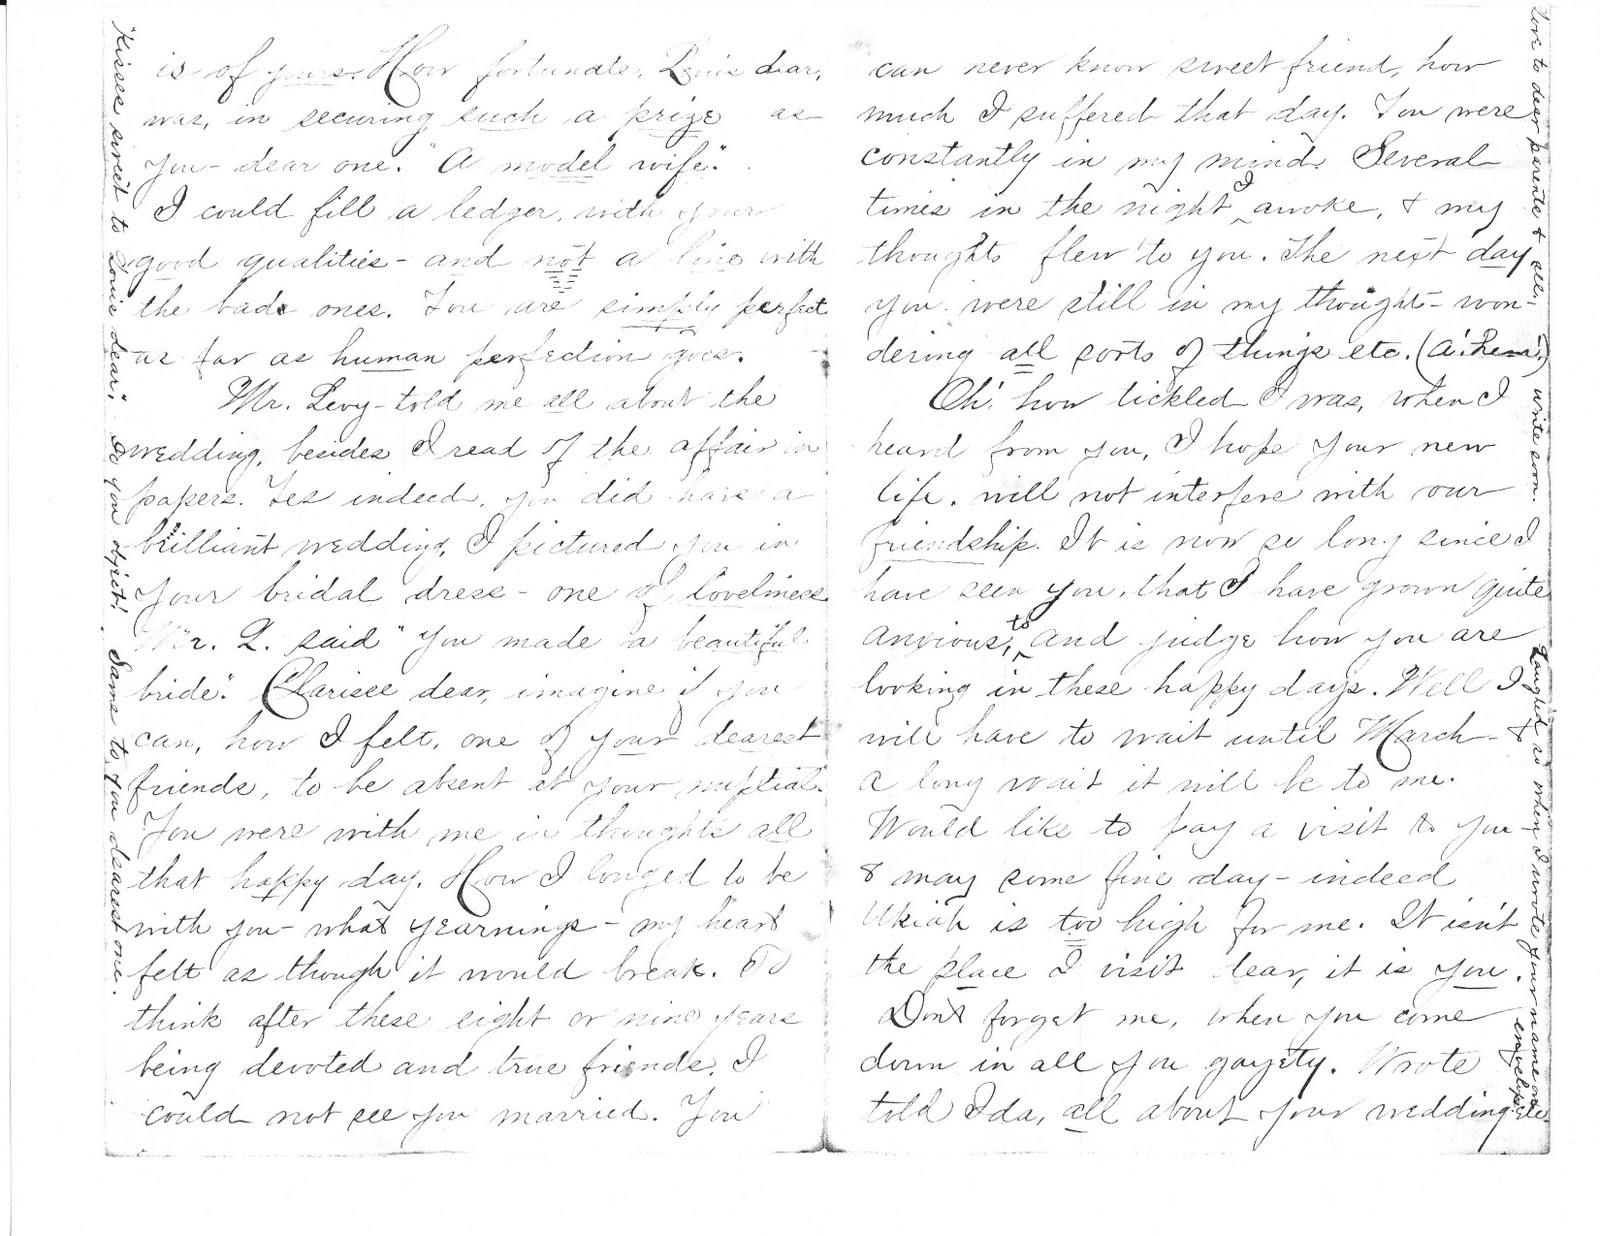 is of yours. How fortunate, Louis dear,
was, in securing such a prize as
you - dear one. "A model wife".
I could fill a ledger, with your
good qualities - and not a line with
the bade ones. You are simply perfect
as far as human perfection goes.
Mr. Levy - told me all about the
wedding, besides I read of the affair in
papers. Yes indeed, you did have a
brilliant wedding, I pictured you in
your bridal dress - one of loveliness
Mr. L. said "You made a beautiful
bride". Clarisee dear, imagine if you
can, how I felt, one of your dearest
friends, to be absent at your nuptial.
You were with me in thoughts all
that happy day. How I longed to be
with you - what yearnings - my heart
felt as though it would break. To
think after these eight or nine years
being devoted and true friends, I
could not see you married. You
"Kisses sweet to Louie dear," do you object! Same to you dearest one.
can never know sweet friend, how
much I suffered that day. You were
constantly in my mind. Several
times in the night I awoke, & my
thoughts flew to you. The next day
you were still in my thought - won-
dering all sorts of things etc. (A'hem!)
Oh! how tickled I was, when I
heard from you, I hope your new
life, will not interfere with our
friendship. It is now so long since I
have seen you, that I have grown quite
anxious, to and judge how you are
looking in these happy days. Well I
will have to wait until March - &
a long wait it will be to me.
Would like to pay a visit to you -
& may some fine day - indeed
Ukiah is too high for me. It isn't
the place I visit dear, it is you.
Don't forget me, when you come
down in all you gayety. Wrote
told Ida, all about your wedding etc.
Love to dear parents & all. write soon. I
Laughed so when I wrote your name on
envelope